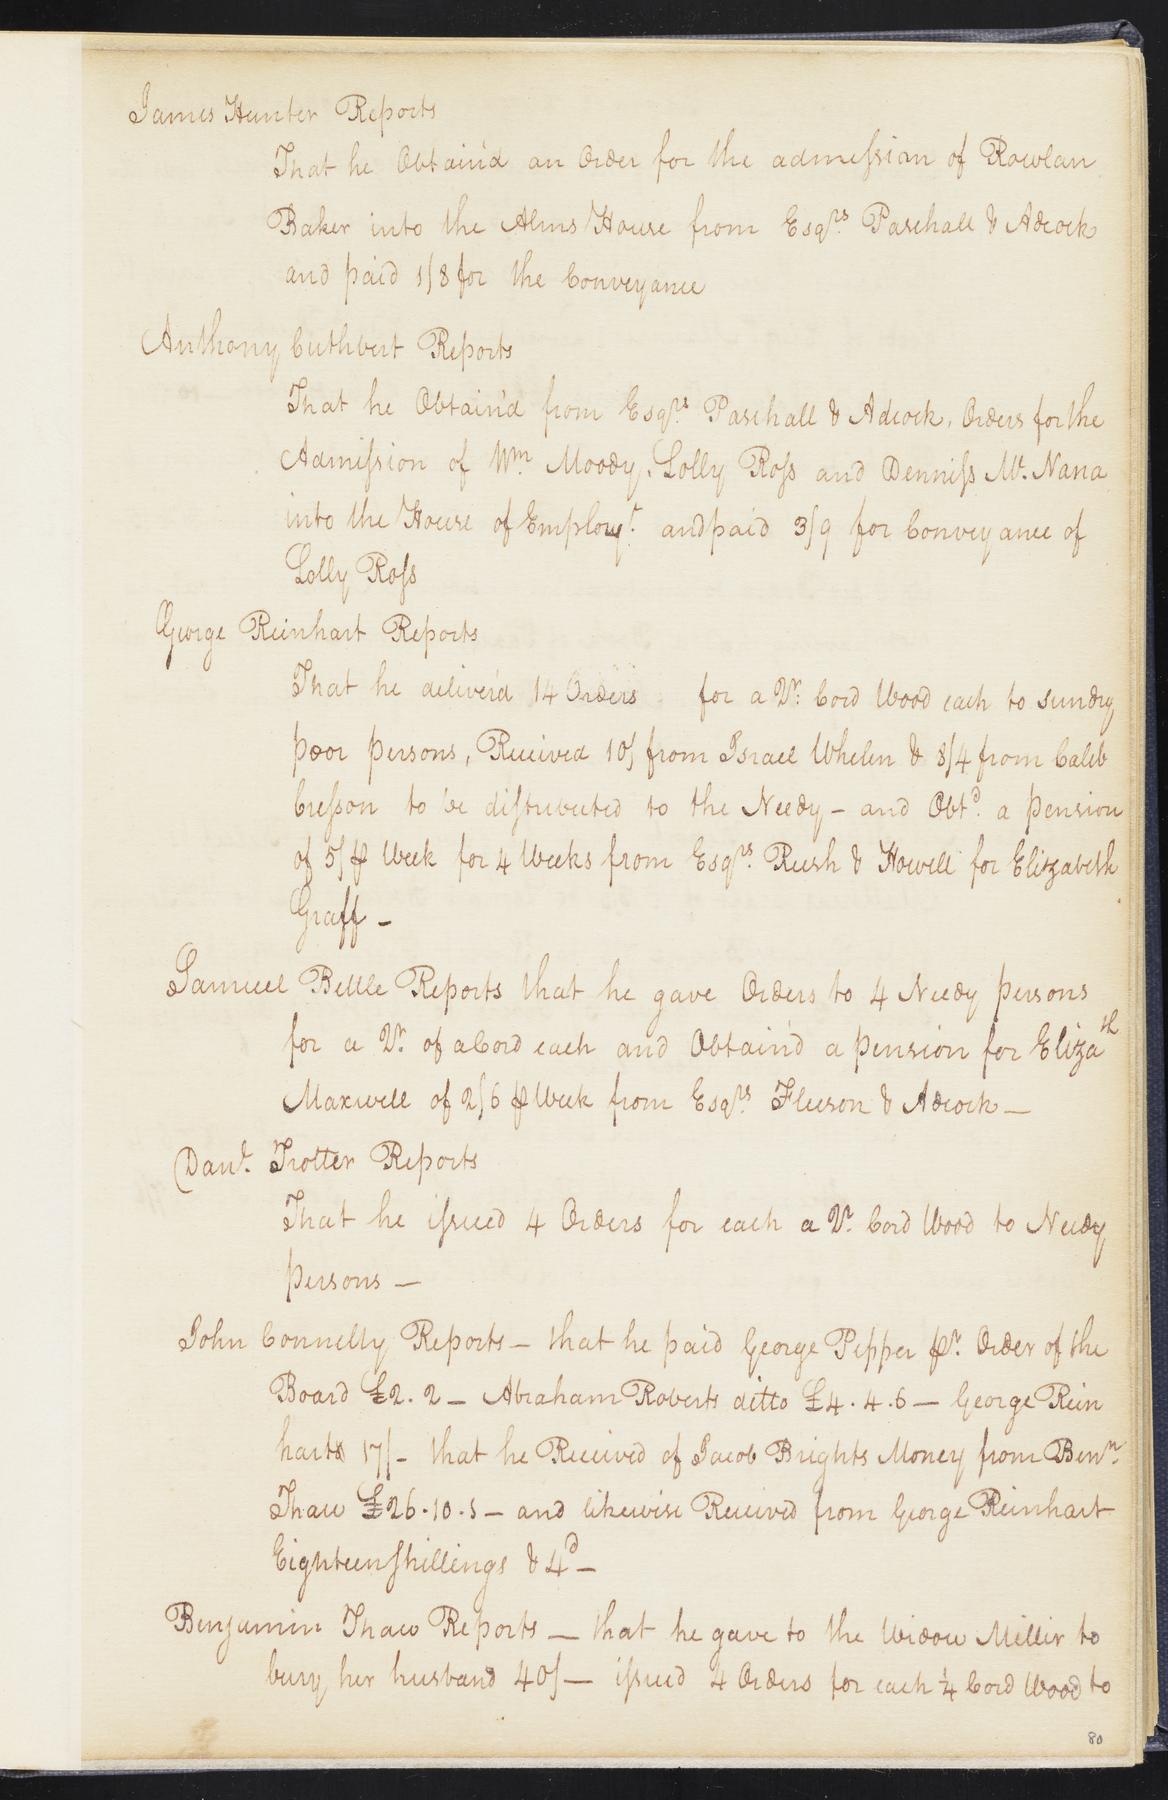 James Hunter Reports
That he Obtain'd an Order for the admission of Rowlan
Baker into the Alms House from Esqrs. Paschall & Adcock
and paid 1/8 for the Conveyance
Anthony Cuthbert Reports
That he Obtain'd from Esqrs. Paschall & Adcock, Orders for the
Admission of Wm. Moody, Lolly Ross and Denniss Mc. Nana
into the House of Employt. and paid 3/9 for Conveyance of
Lolly Ross
George Reinhart Reports
That he deliver'd 14 Orders for a Qr. Cord Wood each to sundry
poor persons, Received 10/ from Israel Whelen & 8/4 from Caleb
Cresson to be distributed to the Needy - and Obtd. a pension
of 5/ ⅌ Week for 4 Weeks from Esqrs. Rush & Howell for Elizabeth
Graff -
Samuel Bettle Reports that he gave Orders to 4 Needy persons
for a Qr. of a Cord each and Obtain'd a pension for Elizath
Maxwell of 2/6 ⅌ Week from Esqrs. Fleeson & Adcock -
Danl. Trotter Reports
That he issued 4 Orders for each a Qr. Cord Wood to Needy
persons -
John Connelly Reports - that he paid George Pepper ⅌r. Order of the
Board £2.2 - Abraham Roberts ditto £4.4.6 - George Rein
harts 17/- that he Received of Jacob Brights Money from Benn.
Thaw £26.10.5 - and likewise Received from George Reinhart
Eighteen Shillings & 4d -
Benjamin Thaw Reports - that he gave to the Widow Miller to
bury her husband 40/ - issued 4 Orders for each ¼ Cord Wood to
80